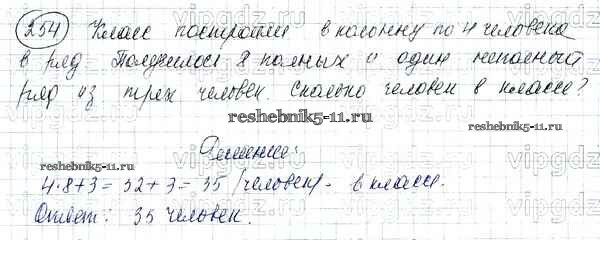 254) Класс построили в колонну по 4 человека
в ряд. Получилось 8 полных и один неполный
ряд из трех человек. Сколько человек в классе?
reshebnik5-11.ru
reshebnik5-11.ru
Решение:
reshebnik5-11.ru
4·8+3=32+3=35 (человек) - в классе.
Ответ: 35 человек.